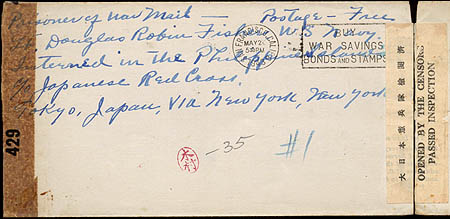 Prisoner of War Mail — Postage - Free
Douglas Robin Fisk U.S. Navy
Interned in the Philippine
c/o Japanese Red Cross,
Tokyo, Japan, Via New York, New York
SAN FRANCISCO, CALIF.
MAY 2
5 PM
BUY
WAR SAVINGS
BONDS AND STAMPS
429
-35
#1
大日本憲兵隊檢閲濟
OPENED BY THE CENSORS
PASSED INSPECTION